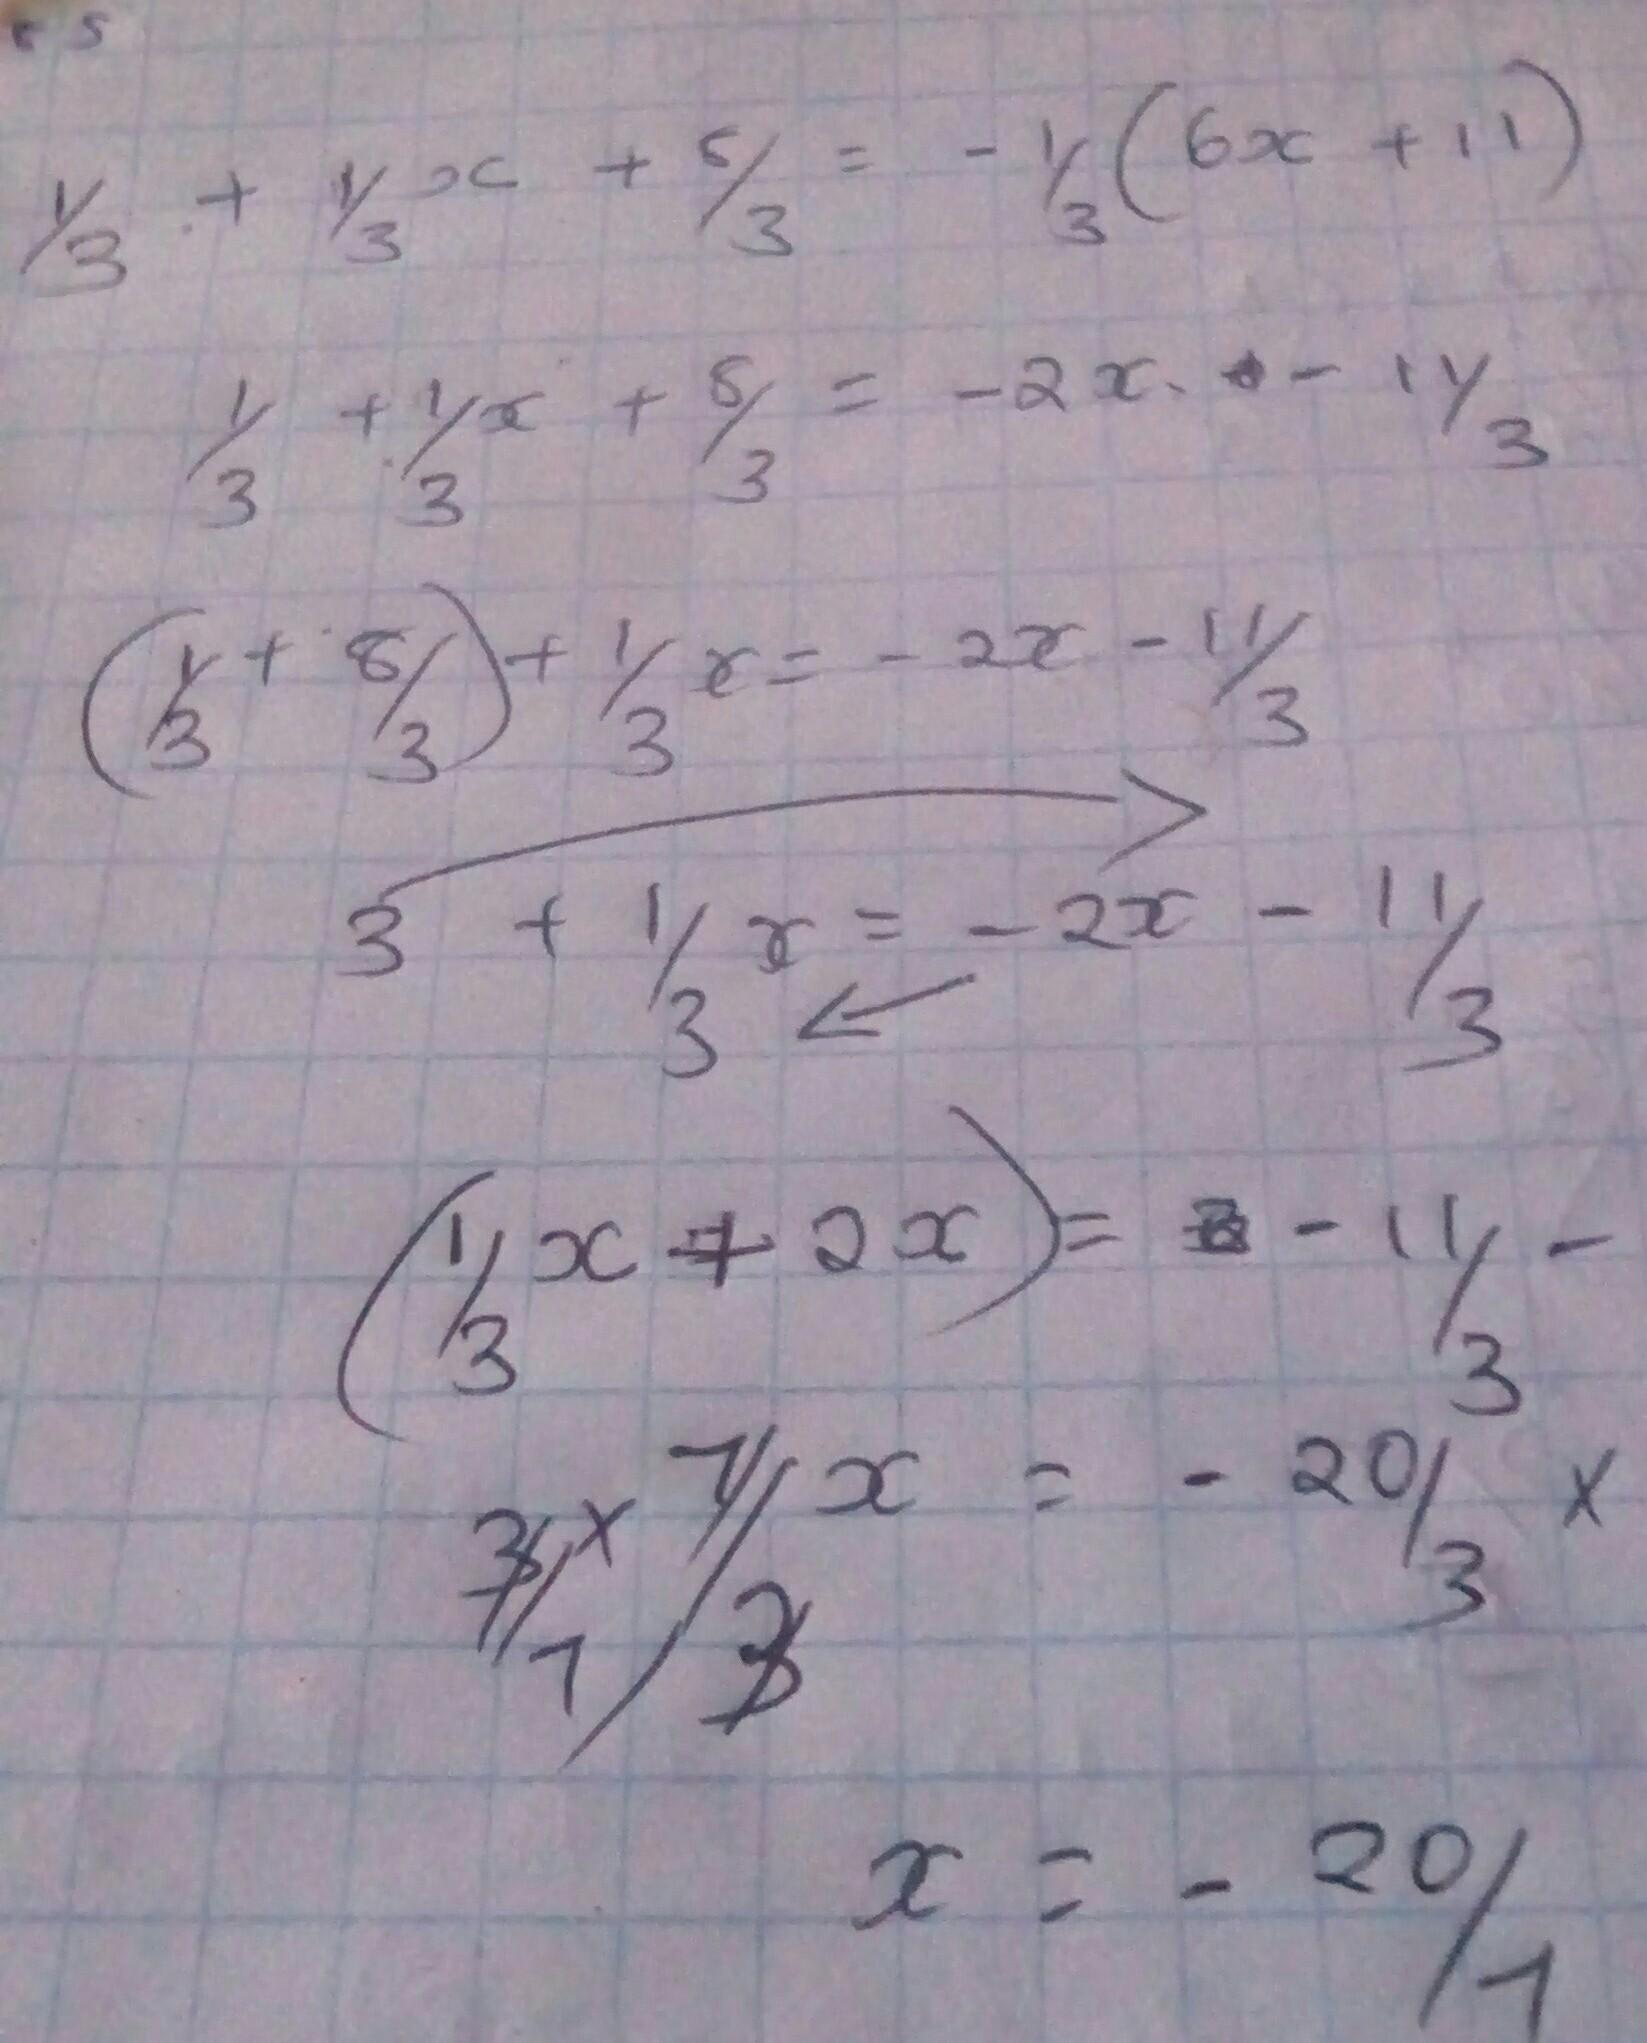 1/3 + 1/3 x + 8/3 = - 1/3 (6x + 11)
1/3 + 1/3 x + 8/3 = - 2x - 11/3
(1/3 + 8/3) + 1/3 x = - 2x - 11/3
3 + 1/3 x = - 2x - 11/3
(1/3 x + 2x) = - 11/3 -
3/7 × 7/3 x = - 20/3 ×
x = - 20/7